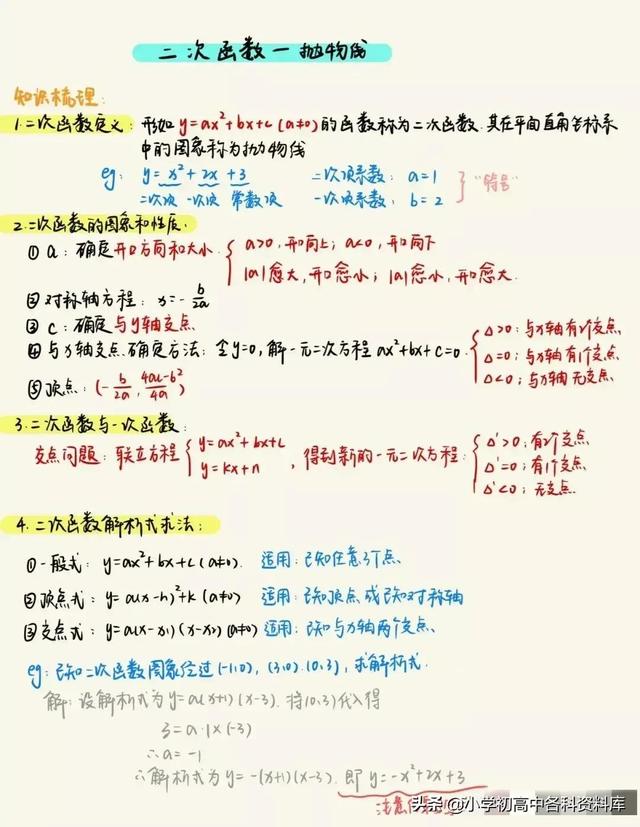 二次函数一抛物线
知识梳理:
1.二次函数定义: 形如 y=ax²+bx+c (a≠0) 的函数称为二次函数. 其在平面直角坐标系
中的图象称为抛物线
eg: y=x²+2x+3 二次项系数: a=1
二次项 一次项 常数项 一次项系数: b=2 "符号"
2.二次函数的图象和性质:
① a: 确定开口方向和大小. a>0, 开口向上; a<0, 开口向下
|a|愈大, 开口愈小; |a|愈小, 开口愈大.
② 对称轴方程: x=-b/2a
③ c: 确定与y轴交点
④ 与x轴交点确定方法: 令y=0, 解一元二次方程 ax²+bx+c=0.
△>0: 与x轴有2个交点
△=0: 与x轴有1个交点
△<0: 与x轴无交点
⑤ 顶点: (-b/2a, 4ac-b²/4a)
3.二次函数与一次函数:
交点问题: 联立方程 y=ax²+bx+c
y=kx+n , 得到新的一元二次方程:
△'>0: 有2个交点
△'=0: 有1个交点
△'<0: 无交点
4.二次函数解析式求法:
①一般式: y=ax²+bx+c (a≠0). 适用: 已知任意3个点、
②顶点式: y=a(x-h)²+k (a≠0) 适用: 已知顶点或已知对称轴
③交点式: y=a(x-x₁)(x-x₂) (a≠0) 适用: 已知与x轴两个交点、
eg: 已知二次函数图象经过(-1,0), (3,0). (0,3), 求解析式.
解: 设解析式为y=a(x+1)(x-3). 将(0,3)代入得
3=a·1×(-3)
∴a=-1
∴解析式为y=-(x+1)(x-3). 即 y=-x²+2x+3
注意
头条@小学初高中各科资料库